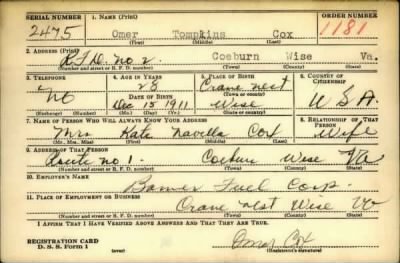 SERIAL NUMBER 1. NAME (Print) ORDER NUMBER
2475 Omer Tompkins Cox 1181
(First) (Middle) (Last)
2. ADDRESS (Print)
R.F.D. No 2. Coeburn Wise Va.
(Number and street or R. F. D. number) (Town) (County) (State)
3. TELEPHONE 4. AGE IN YEARS 5. PLACE OF BIRTH 6. COUNTRY OF CITIZENSHIP
28 Crane Nest
DATE OF BIRTH (Town or county)
No Dec 15 1911 Wise U S A
(Exchange) (Number) (Mo.) (Day) (Yr.) (State or country)
7. NAME OF PERSON WHO WILL ALWAYS KNOW YOUR ADDRESS 8. RELATIONSHIP OF THAT PERSON
Mrs Kate Navilla Cox Wife
(Mr., Mrs., Miss) (First) (Middle) (Last)
9. ADDRESS OF THAT PERSON
Route no 1. Coeburn Wise Va
(Number and street or R. F. D. number) (Town) (County) (State)
10. EMPLOYER'S NAME
Fuel Corp.
11. PLACE OF EMPLOYMENT OR BUSINESS
Crane Nest Wise Va
(Number and street or R. F. D. number) (Town) (County) (State)
I AFFIRM THAT I HAVE VERIFIED ABOVE ANSWERS AND THAT THEY ARE TRUE.
REGISTRATION CARD
D. S. S. Form 1 (over) Omer Cox
(Registrant's signature)